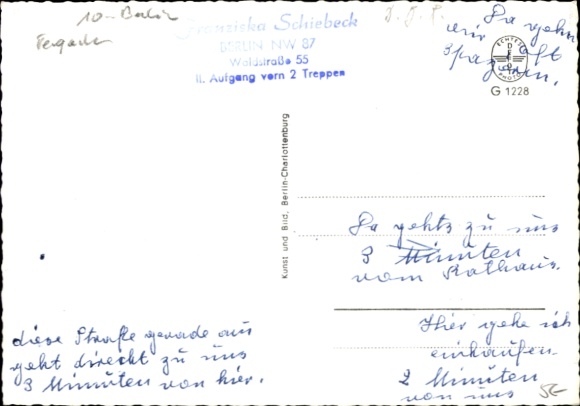 10-Berlin
Franziska Schiebeck
BERLIN NW 87
Waldstraße 55
II. Aufgang vorn 2 Treppen
Da gehn
wir oft
spazieren.
ECHTES
PHOTO
G 1228
Kunst und Bild, Berlin-Charlottenburg
Da gehts zu uns
3 Minuten
vom Rathaus.
diese Straße gerade aus
geht direckt zu uns
3 Minuten von hier.
Hier gehe ich
einkaufen
2 Minuten
von uns
5-